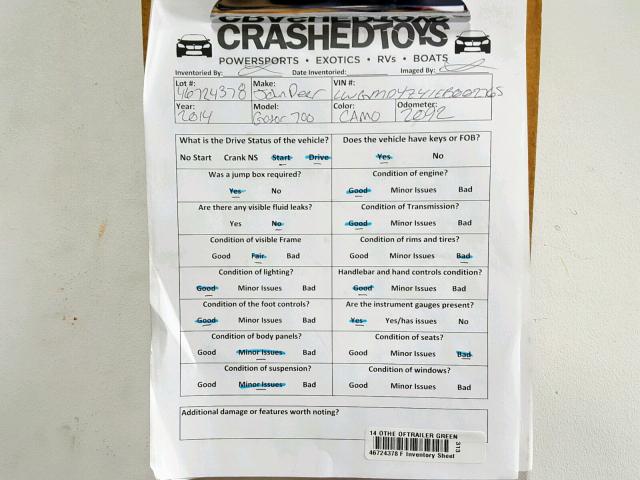 CRASHEDTOYS
POWERSPORTS • EXOTICS • RVs • BOATS
Inventoried By: Date Inventoried: Imaged By:
Lot #: Make: VIN #:
46724378 John Deer
Year: Model: Color: Odometer:
2014 Gator 700 CAMO 2042
What is the Drive Status of the vehicle? Does the vehicle have keys or FOB?
No Start Crank NS Start Drive Yes No
Was a jump box required? Condition of engine?
Yes No Good Minor Issues Bad
Are there any visible fluid leaks? Condition of Transmission?
Yes No Good Minor Issues Bad
Condition of visible Frame Condition of rims and tires?
Good Fair Bad Good Minor Issues Bad
Condition of lighting? Handlebar and hand controls condition?
Good Minor Issues Bad Good Minor Issues Bad
Condition of the foot controls? Are the instrument gauges present?
Good Minor Issues Bad Yes Yes/has issues No
Condition of body panels? Condition of seats?
Good Minor Issues Bad Good Minor Issues Bad
Condition of suspension? Condition of windows?
Good Minor Issues Bad Good Minor Issues Bad
Additional damage or features worth noting?
14 OTHE OFTRAILER GREEN
313
46724378 F Inventory Sheet